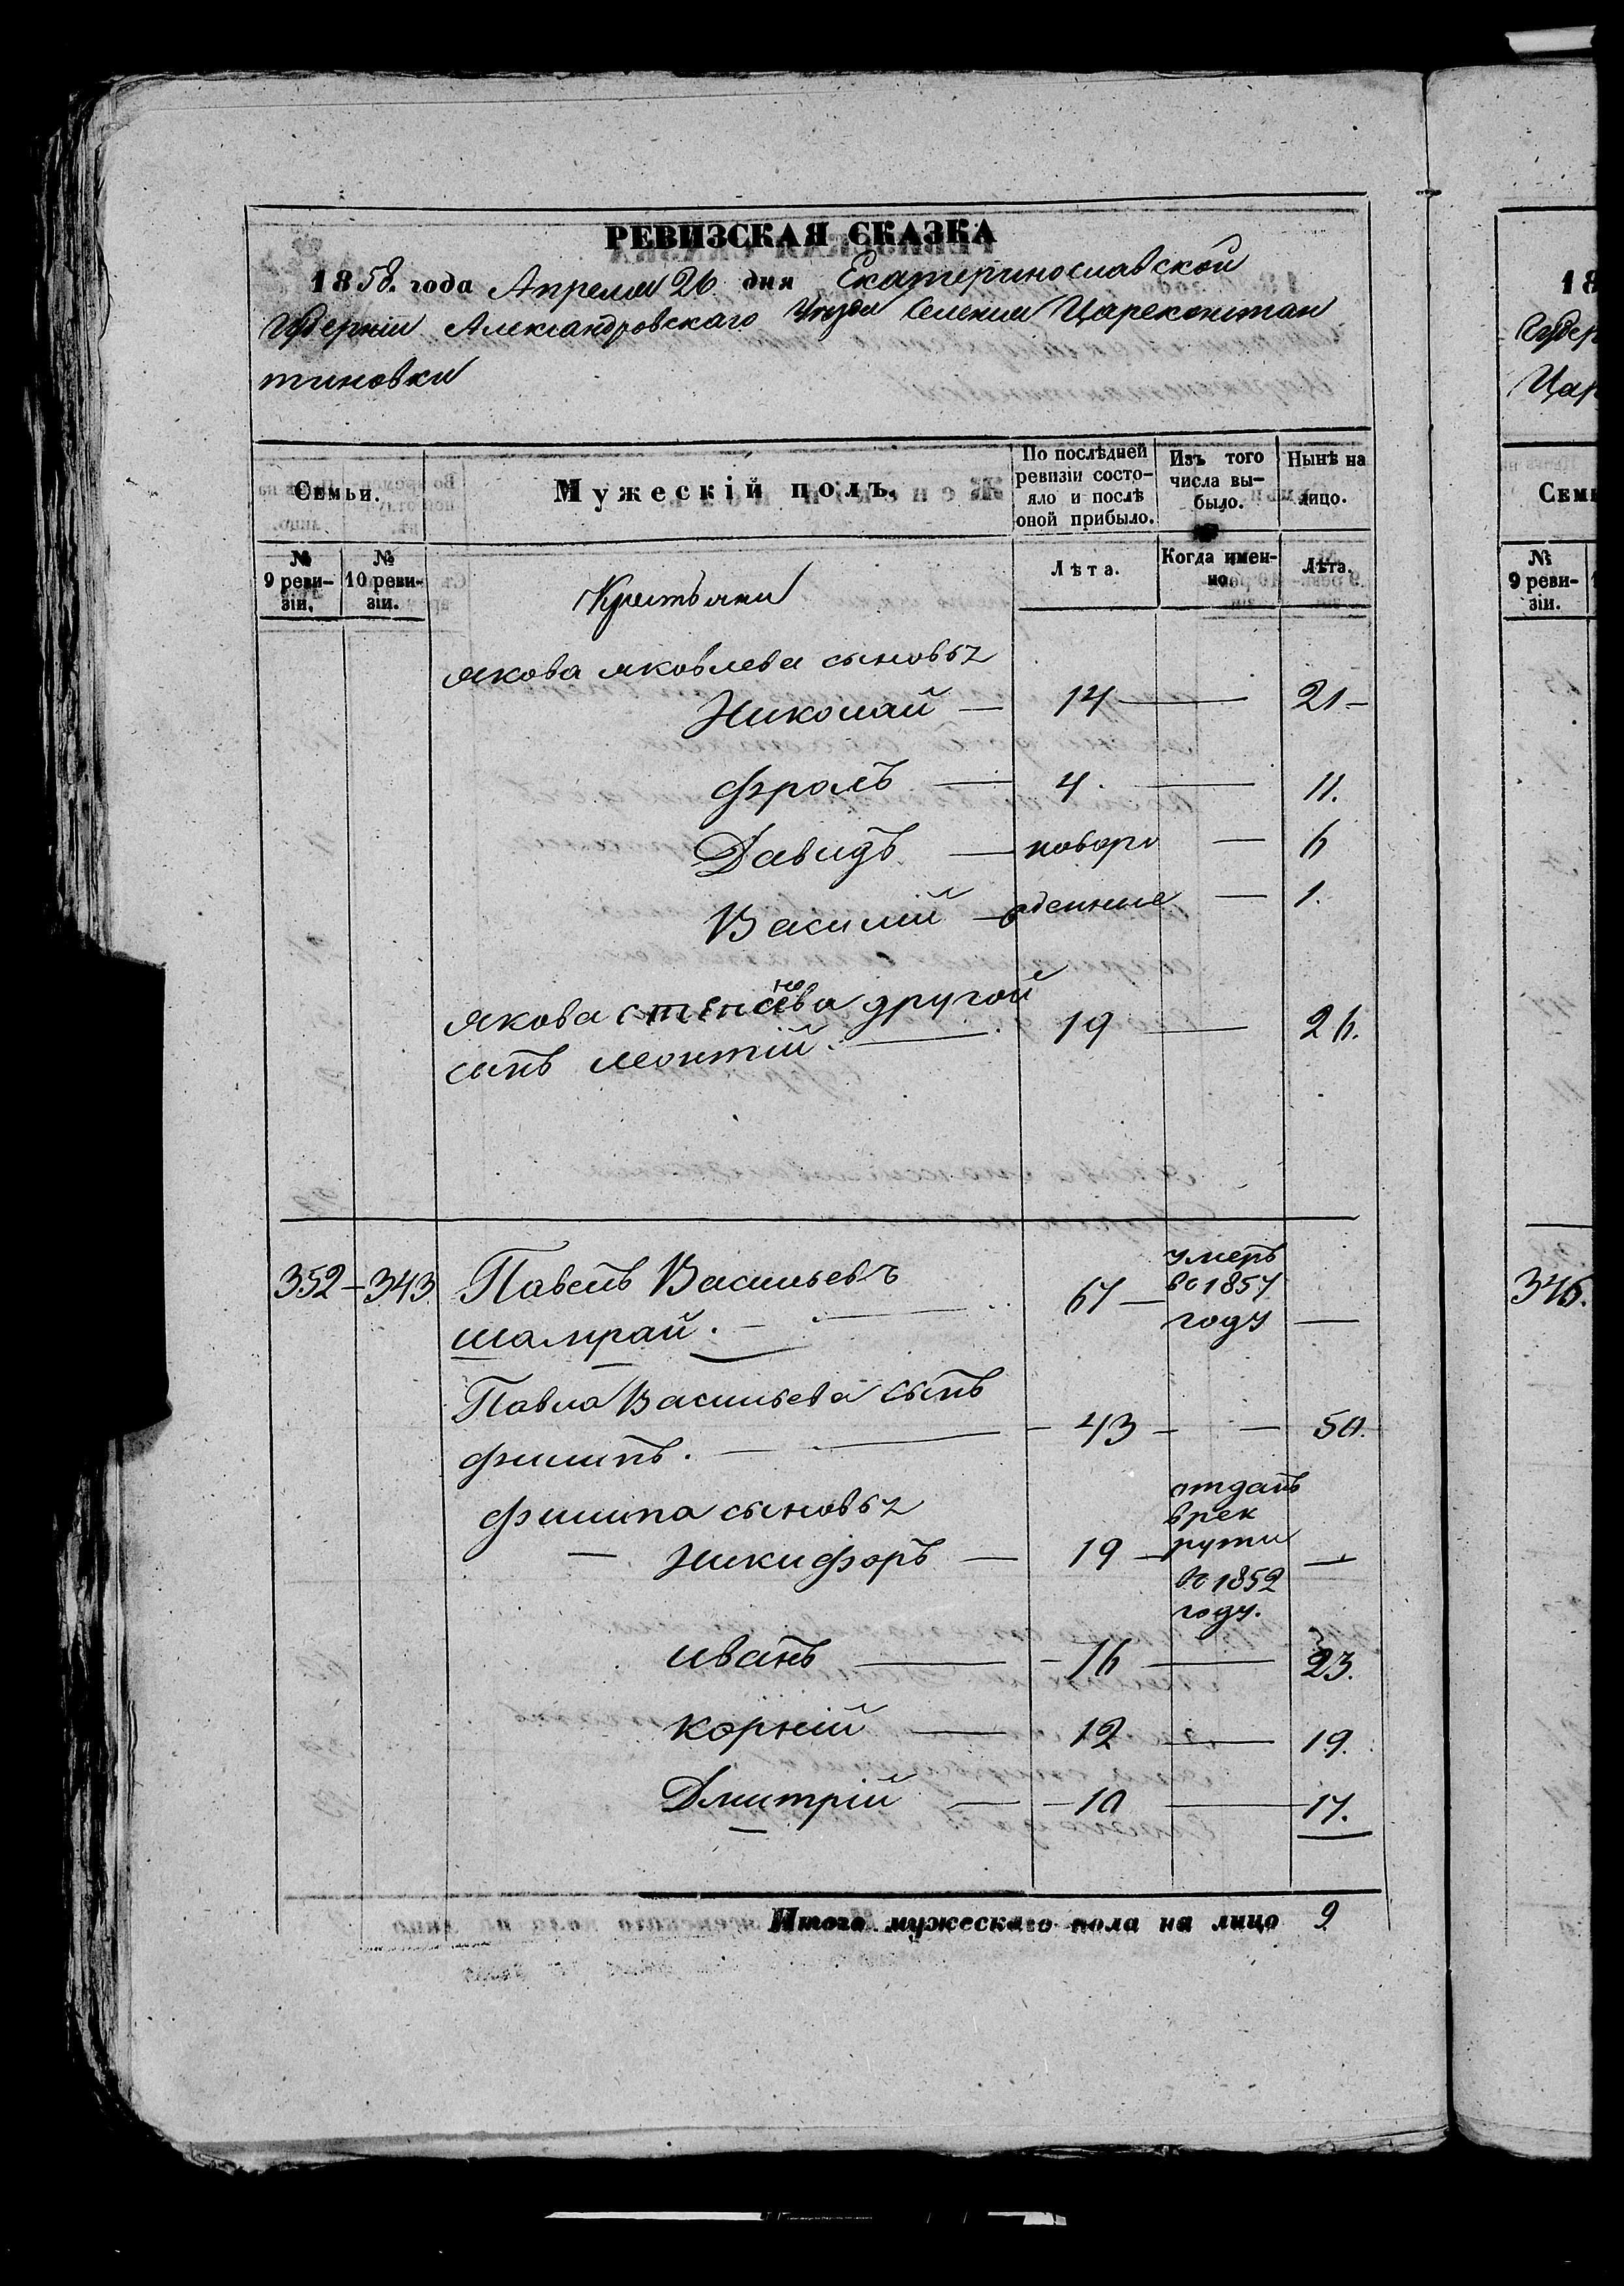 РЕВИЗСКАЯ СКАЗКА
1858. года Апреля 26 дня Екатеринославской
Губерніи Александровскаго Уезда Селенія Цареконстан
тиновки
Семьи.
Мужескій полъ.
По послѣдней ревизіи состояло и послѣ оной прибыло.
Изъ того числа выбыло.
Нынѣ на лицо.
№ 9 ревизіи.
№ 10 ревизіи.
Крестьяни
Лѣта.
Когда именно.
Лѣта.
Якова яковлева сыновья
Николай — 14 — 21 —
Фролъ — 4. — 11.
Давидъ — новоро — 6
Василій — жденные — 1.
Якова степанова другой
сынъ леонтій. — 19 — 26.
352 — 343. Павелъ Васильевъ
шамрай. — 67 — умеръ во 1857 году —
Павла Васильева сынъ
филипъ. — 43 — — 50.
филипа сыновья
— Никифоръ — 19 — отданъ
врек
рути
во 1852
году.
иванъ — 16 — 23.
корній — 12 — 19.
Дмитрій — 10 — 17.
Итого мужескаго пола на лицо 9
18
Губер
Цар
Семь
№ 9 ревизіи.
346.